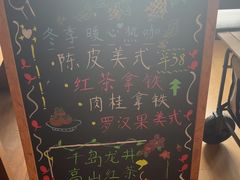 冬季暖心热咖
·陈皮美式
红茶拿铁
·肉桂拿铁
·罗汉果美式
千岛龙井
高山红茶